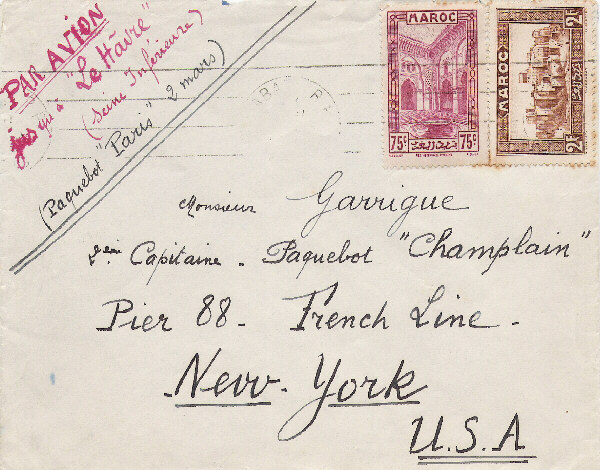 PAR AVION
jusqu'à "Le Hâvre"
(Seine Inférieure)
(Paquebot "Paris" 2 mars)
MAROC
75c 75c
MAROC
2F 2F
Monsieur Garrigue
Capitaine - Paquebot "Champlain"
Pier 88 - French Line -
New-York
U.S.A